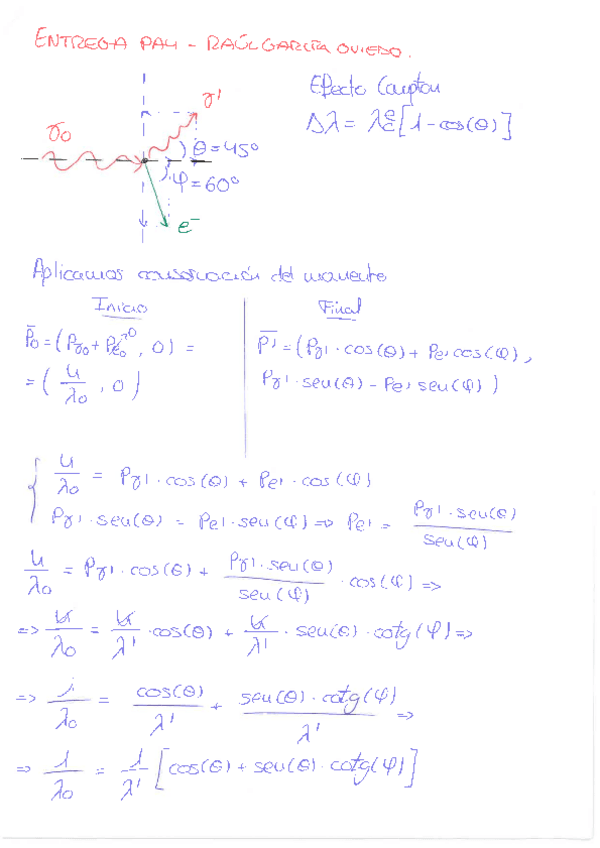 ENTREGA PA4 - RAÚL GARCÍA OVIEDO.
Efecto Compton
Δλ = λcᵉ [1 - cos(θ)]
γ'
γ0
θ = 45°
φ = 60°
e⁻
Aplicamos conservación del momento
Inicio
P̄0 = (Pγ0 + Pe0→0, 0) =
= (h/λ0, 0)
Final
P̄' = (Pγ' · cos(θ) + Pe' cos(φ),
Pγ' · sen(θ) - Pe' sen(φ))
h/λ0 = Pγ' · cos(θ) + Pe' · cos(φ)
Pγ' · sen(θ) = Pe' · sen(φ) => Pe' = Pγ' · sen(θ)/sen(φ)
h/λ0 = Pγ' · cos(θ) + Pγ' · sen(θ)/sen(φ) · cos(φ) =>
=> h/λ0 = h/λ' · cos(θ) + h/λ' · sen(θ) · cotg(φ) =>
=> 1/λ0 = cos(θ)/λ' + sen(θ) · cotg(φ)/λ' =>
=> 1/λ0 = 1/λ' [cos(θ) + sen(θ) · cotg(φ)]